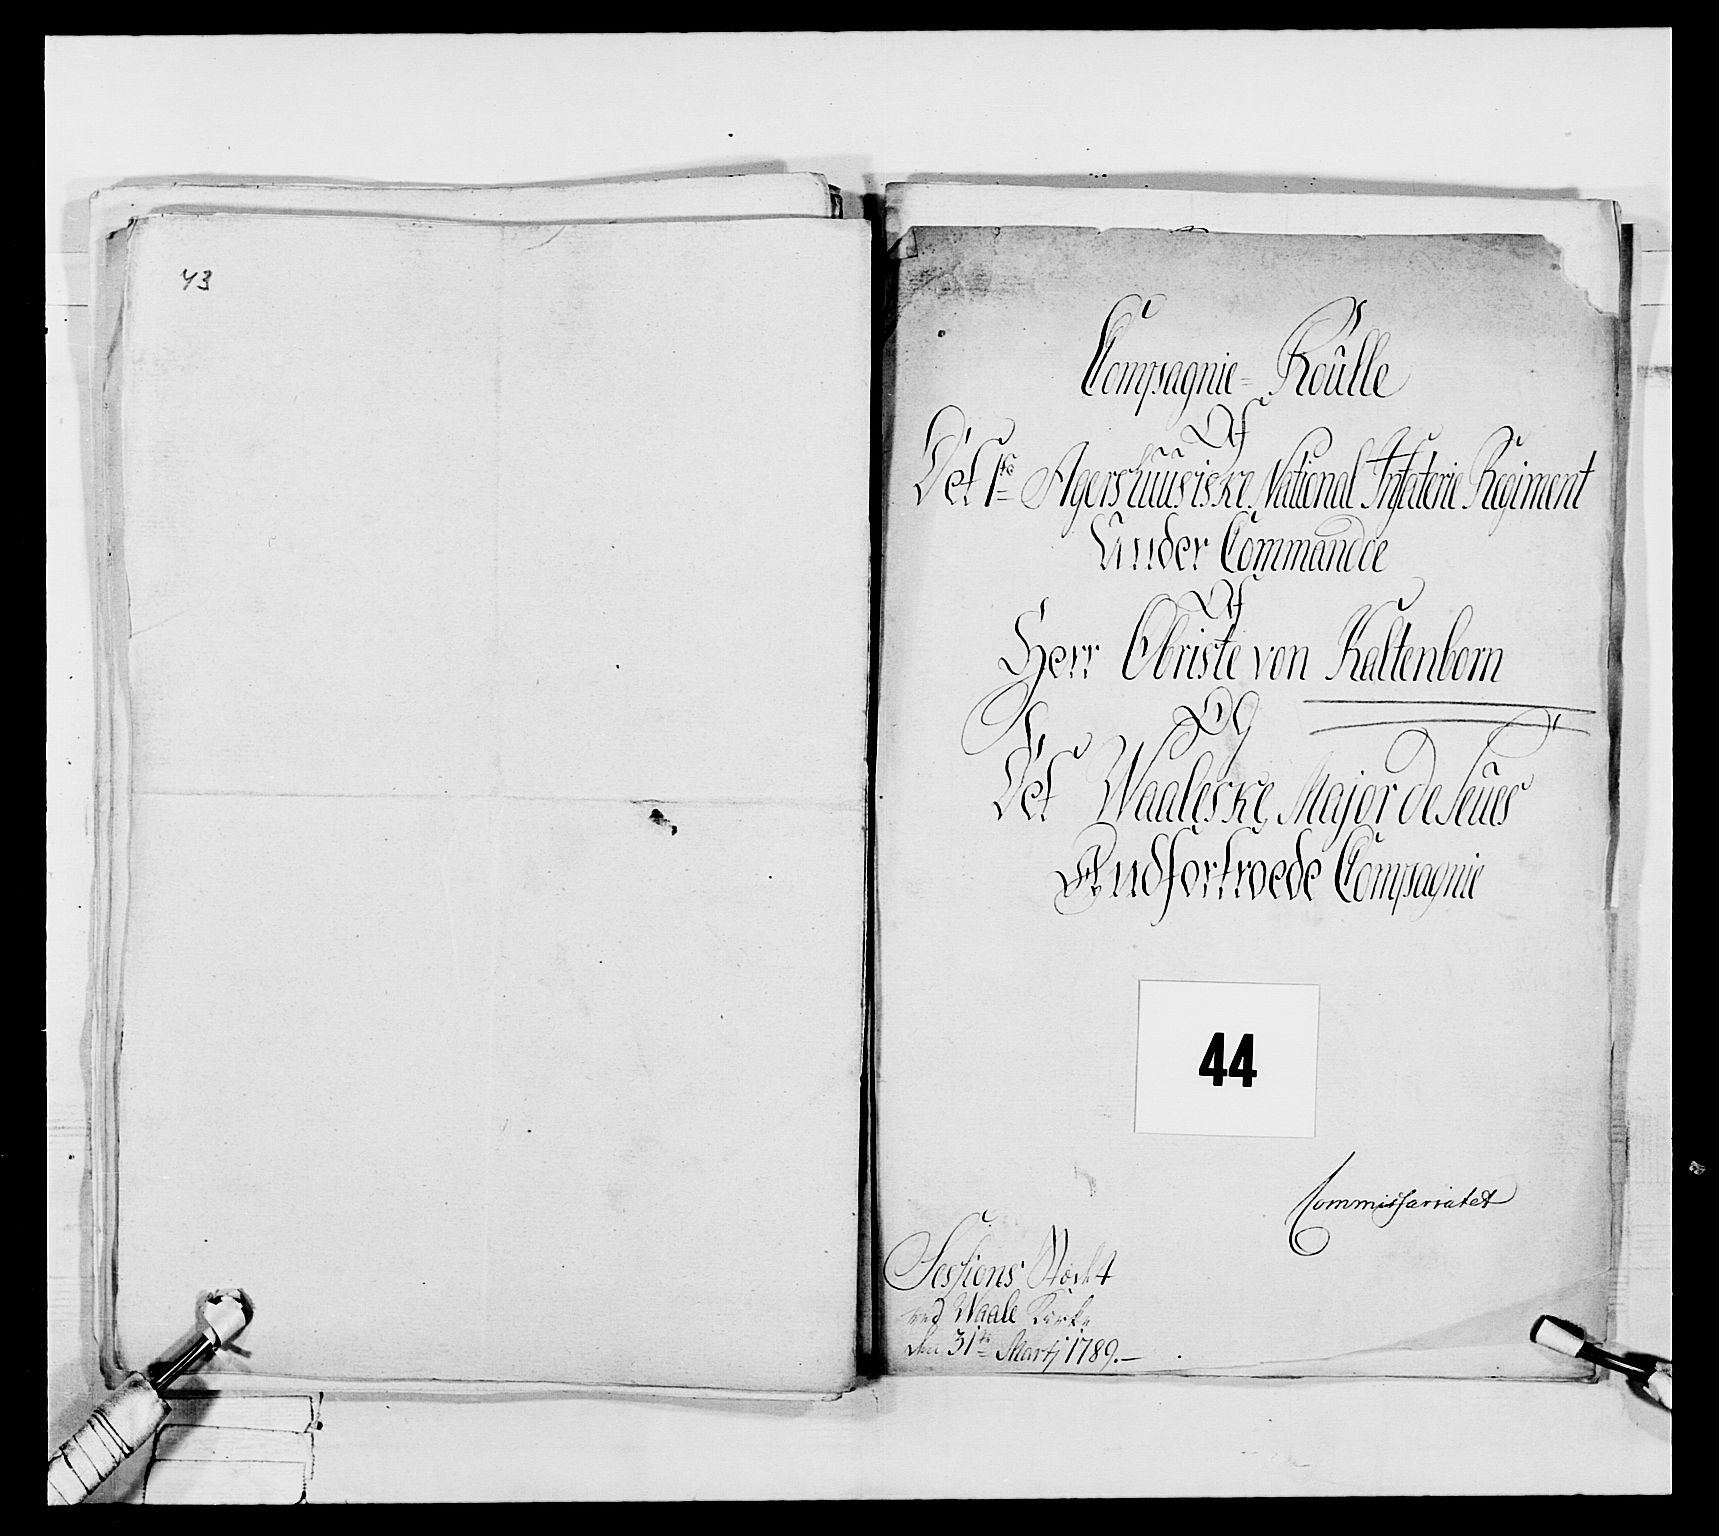 43
Compagnie-Roulle
Af
Det 1ste Agershuusiske National Infaterie Regiment
Under Commandoe
Af
Herr Obriste von Kaltenborn
Og
Det Waaleske Major de Seües
Andfortroede Compagnie
44
Commissariatet
Sessions
ved Waale Kirke
den 31te Martj 1789.—